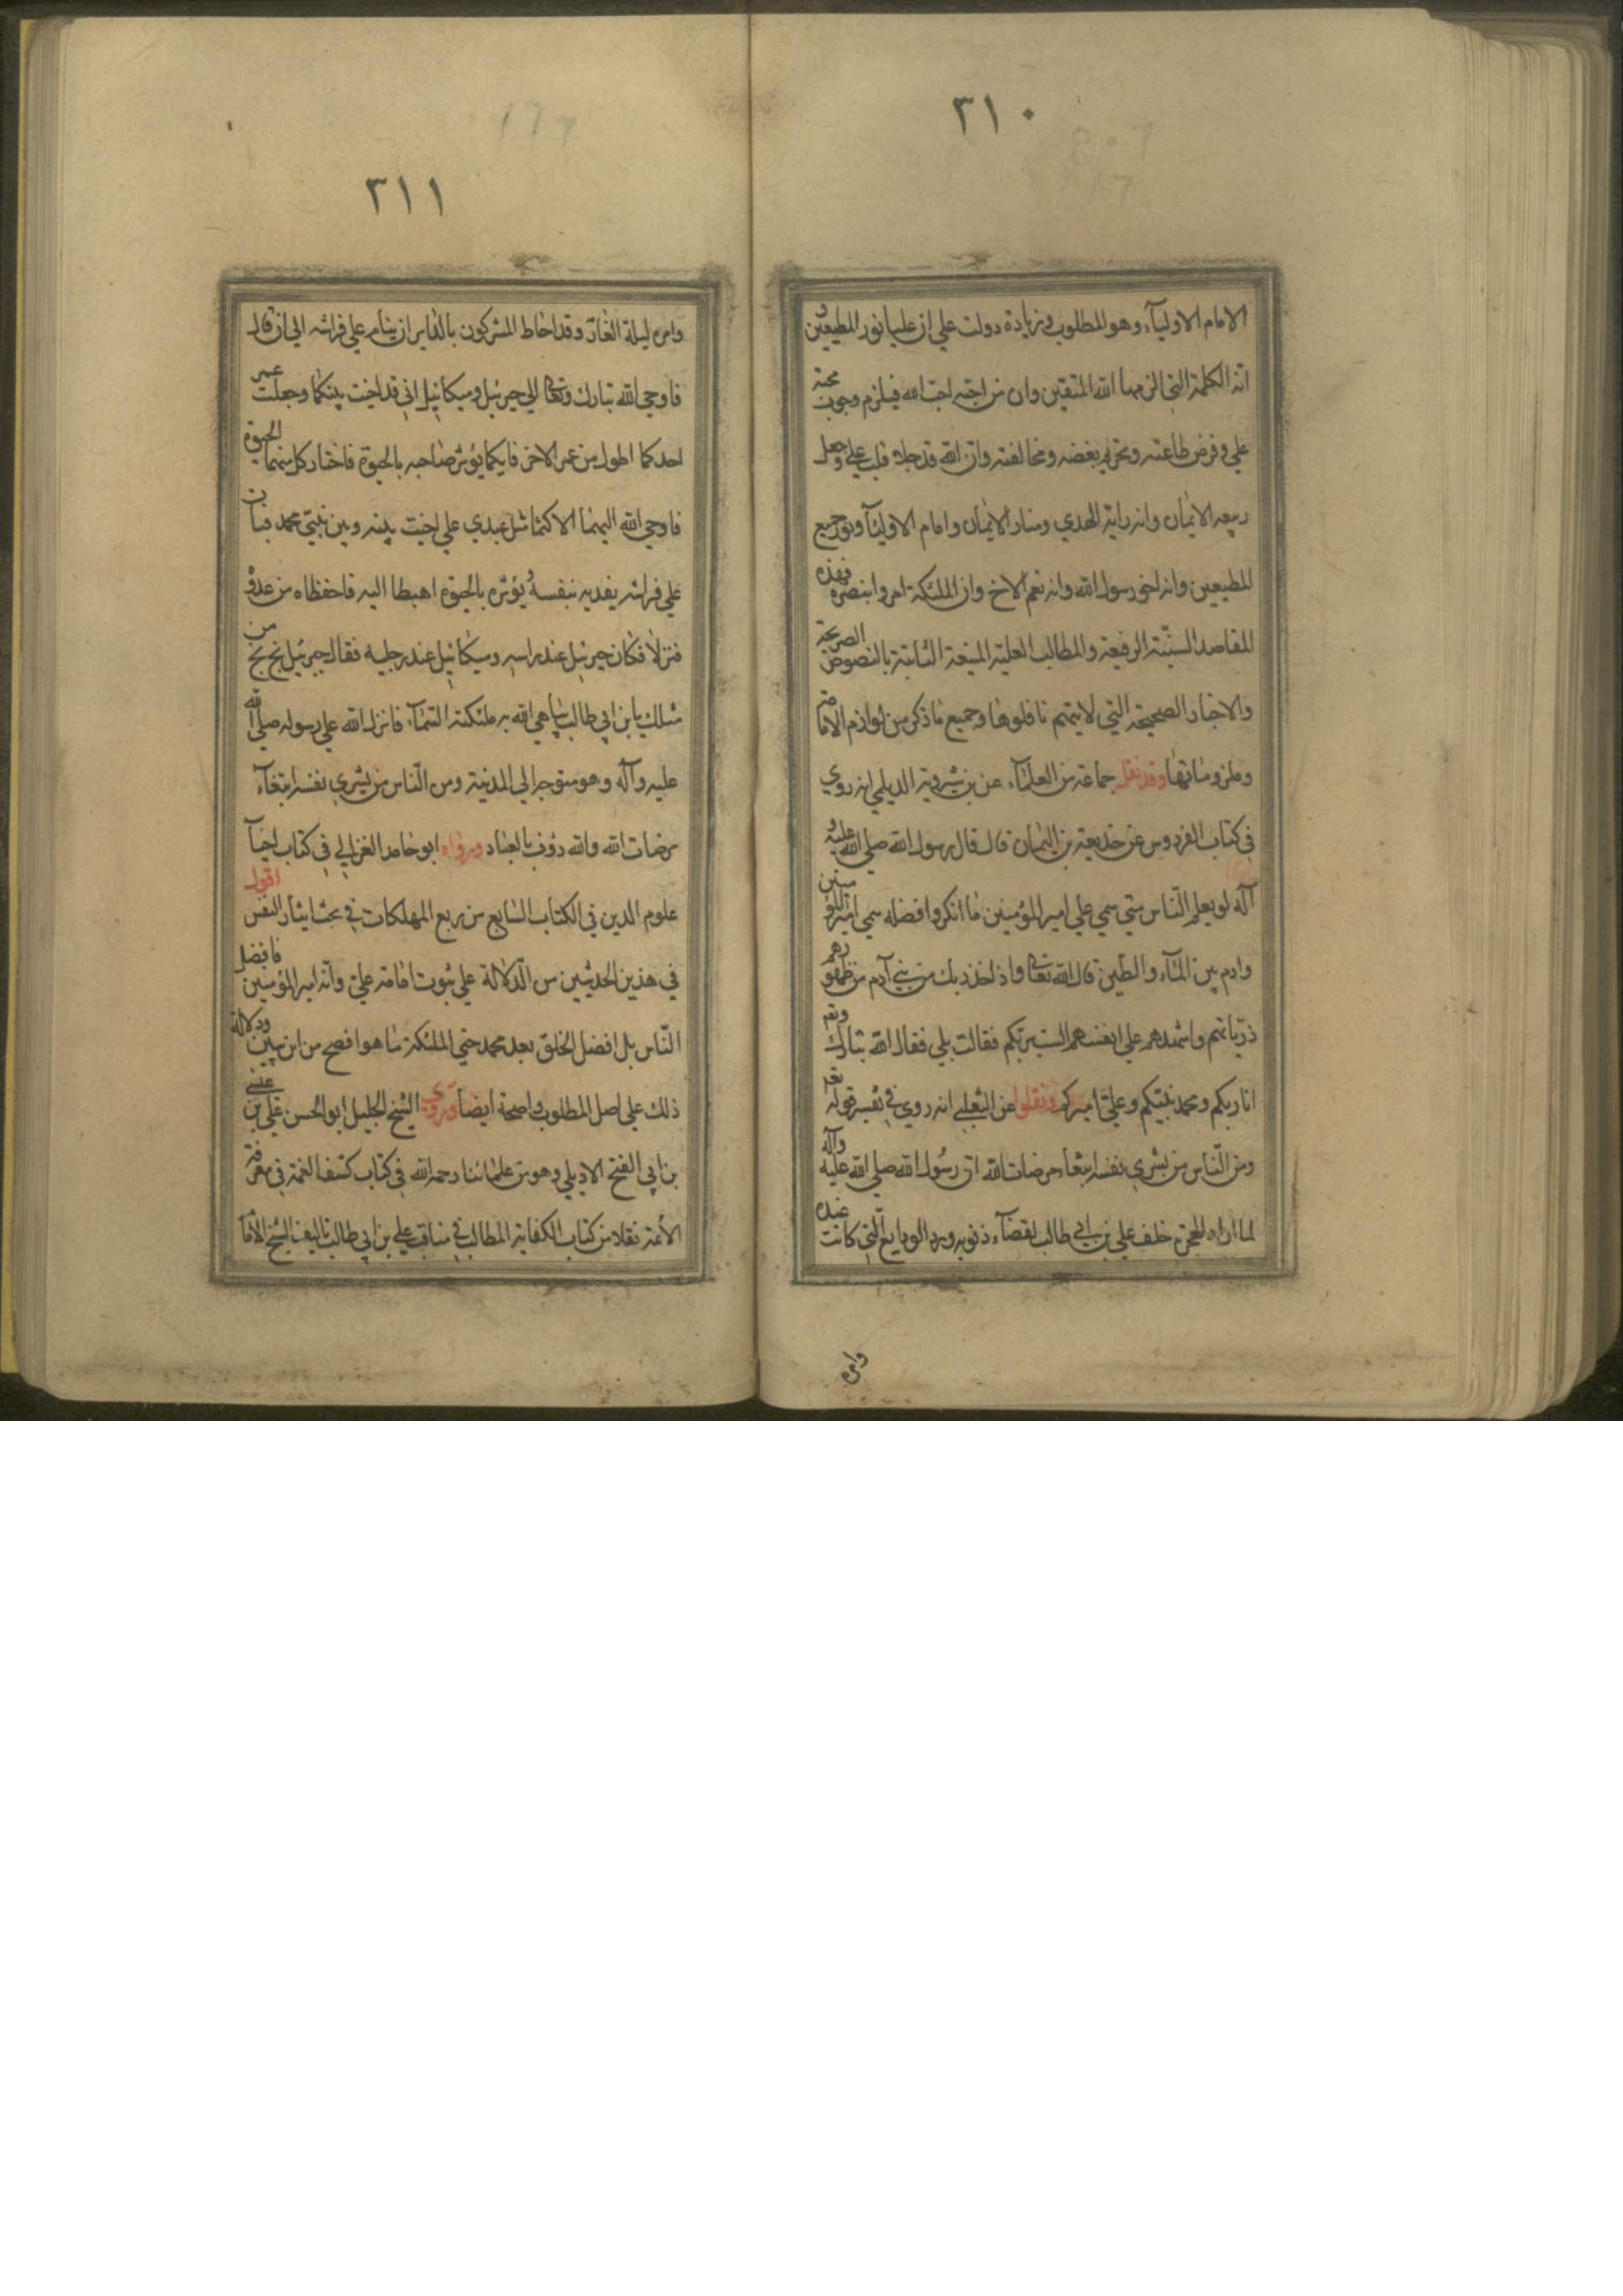 ٣١٠
الامام الاولياء وهو المطلوب وزيادة دولت علي ان عليا نور المطيعين و
انه الكلمة التي الزمها الله المتقين وان من احبه احب الله فيلزم وجوب محبة
علي وفرض طاعته وتحريم بغضه ومخالفته وان الله قد جلا قلب علي وجعل
ربيعه الايمان وانه راية الهدي ومنار الايمان وامام الاولياء ونور جميع
المطيعين وانه اخي رسول الله وانه نعم الاخ وان الملئكة امروا بنصره فهذه
المقاصد السنيّة الرفيعة والمطالب العلية المنيعة الثابتة بالنصوص الصريحة
والاخبار الصحيحة التي لا يتهم ناقلوها وجميع ما ذكر من لوازم الامامة
وملزوماتها وقد نقل جماعة من العلماء عن بن شيروية الديلمي انه روي
في كتاب الفردوس عن حذيفة بن اليمان قال قال رسول الله صلي الله عليه و
آله لو يعلم النّاس متي سمي علي امير المؤمنين ما انكروا فضله سمي امير المؤمنين
وادم بين الماء والطين قال الله تعالى واذ اخذ ربك من بني آدم من ظهورهم
ذرّياتهم واشهدهم علي انفسهم الست بربّكم فقالت بلي فقال الله تبارك وتعم
انا ربكم ومحمد نبيّكم وعليّ اميركم ونقلوا عن الثعلبي انه روي في تفسير قوله تعم
ومن النّاس من يشري نفسه ابتغاء مرضات الله ان رسول الله صلي الله عليه وآله
لما اراد الهجرة خلف علي بن ابي طالب لقضاء ذنوبه ورد الودايع الّتي كانت عنده
وامره
٣١١
وامره ليلة الغار وقد احاط المشركون بالدار ان ينام علي فراشه الي ان قال
فاوحي الله تبارك وتعالى الي جبرئيل وميكائيل اني قد اخيت بينكما وجعلت عمر
احدكما اطول من عمر الاخر فايكما يؤثر صاحبه بالحيوة فاختار كل منهما الحيوة
فاوحي الله اليهما الا كنتما مثل عبدي علي اخيت بينه وبين نبيّي محمد فبات
علي فراشه يفديه بنفسه ويؤثره بالحيوة اهبطا اليه فاحفظاه من عدوه
فنزلا فكان جبرئيل عند راسه وميكائيل عند رجليه فقال جبرئيل بخ بخ من
مثلك يا بن ابي طالب يباهي الله به ملئكته السماء فانزل الله علي رسوله صلي الله
عليه وآله وهو متوجه الي المدينة ومن النّاس من يشري نفسه ابتغاء
مرضات الله والله رؤف بالعباد ورواه ابو حامد الغزالي في كتاب احياء
علوم الدين في الكتاب السابع من ربع المهلكات في بحث ايثار النفس اقول
في هذين الحديثين من الدّلالة علي ثبوت امامة عليّ وانّه امير المؤمنين فافضل
النّاس بل افضل الخلق بعد محمد حتي الملئكة ما هو افصح من ابن بيين ودلالة
ذلك علي اصل المطلوب واضحة ايضا وروي الشيخ الجليل ابو الحسن علي بن عيسي
بن ابي الفتح الاربلي وهو من علمائنا رحمه الله في كتاب كشف الغمة في معرفة
الأئمة نقلا من كتاب الكفاية المطالب في مناقب علي بن ابي طالب تاليف الشيخ الامام